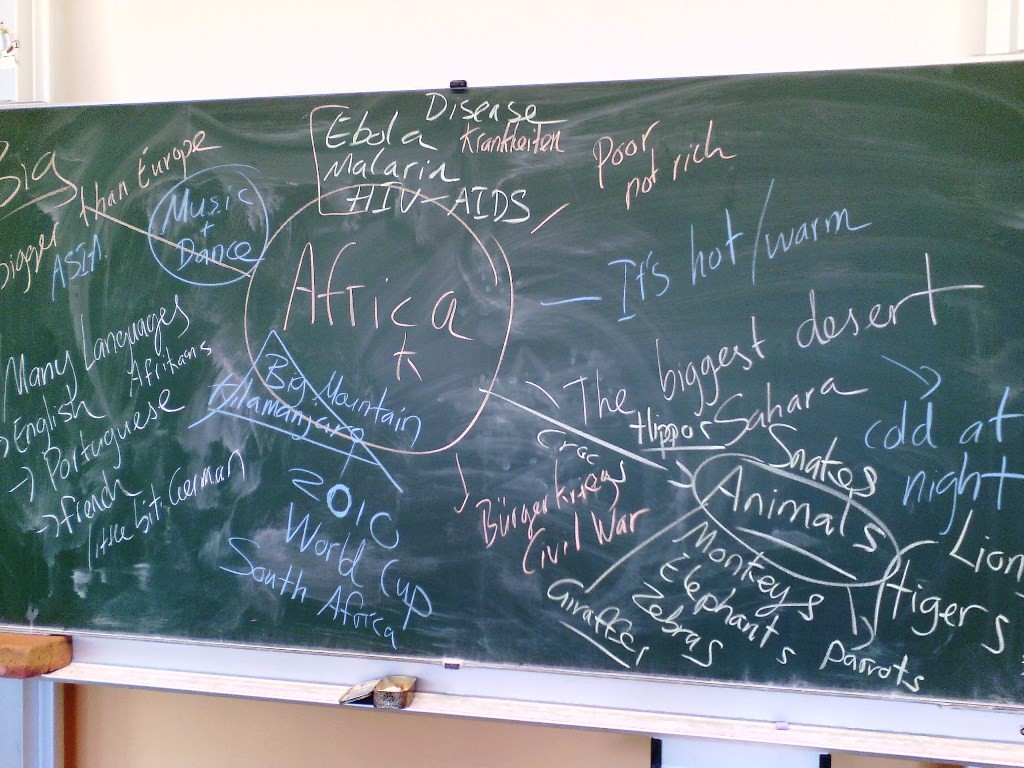 Big
than Europe
bigger
ASIA
Music
+
Dance
Disease
Ebola Krankheiten
Malaria
HIV-AIDS
Poor
not rich
Africa
It's hot/warm
The biggest desert
Sahara
cold at
night
Many Languages
Afrikans
English
-> Portuguese
-> French
little bit German
Big Mountain
Kilamanjaro
2010
World Cup
South Africa
Bürgerkriege
Civil War
Hippos
Crocs
Snakes
Animals
Lion
Tigers
Monkeys
Elephants
Zebras
Giraffe
parrots